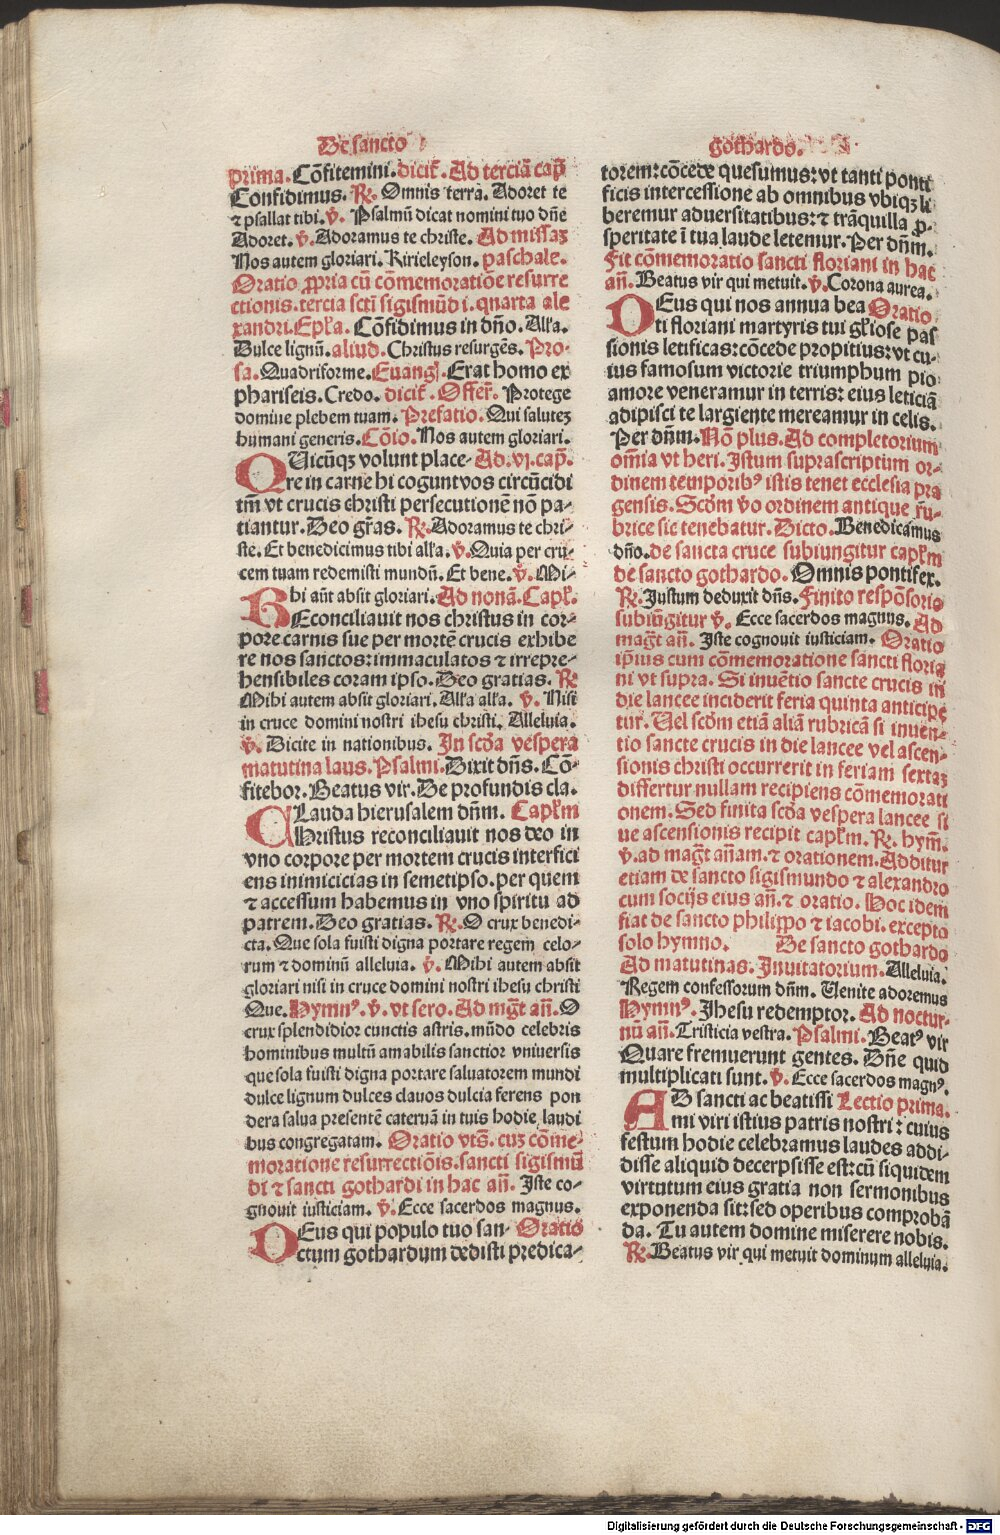 De sancto
gothardo.
prima. Cōfitemini. dicit̄. Ad terciā cap̄.
Confidimus. R̄. Omnis terra. Adoret te
⁊ psallat tibi. v̄. Psalmū dicat nomini tuo dn̄e
Adoret. v̄. Adoramus te christe. Ad missaꝫ
Nos autem gloriari. Kirieleyson. paschale.
Oratio ꝓpria cū cōmemoratiōe resurre
ctionis. tercia scti sigismūdi. quarta ale
xandri. Ep̄la. Cōfidimus in dn̄o. All̄a.
Dulce lignū. aliud. Christus resurgēs. Pro-
sa. Quadriforme. Euangl̄. Erat homo ex
phariseis. Credo. dicit̄. Offer̄. Protege
domine plebem tuam. Prefatio. Qui saluteꝫ
humani generis. Cōio. Nos autem gloriari.
QUicūqꝫ volunt place- Ad. vj. cap̄.
re in carne hi cogunt vos circūcidi
tm̄ vt crucis christi persecutionē nō pa-
tiantur. Deo gr̄as. R̄. Adoramus te chri-
ste. Et benedicimus tibi all̄a. v̄. Quia per cru-
cem tuam redemisti mundū. Et bene. v̄. Mi-
hi aūt absit gloriari. Ad nonā. Capl̄.
REconciliauit nos christus in cor-
pore carnis sue per mortē crucis exhibe
re nos sanctos: immaculatos ⁊ irrepre-
hensibiles coram ipso. Deo gratias. R̄.
Mihi autem absit gloriari. All̄a all̄a. v̄. Nisi
in cruce domini nostri ihesu christi. Alleluia.
v̄. Dicite in nationibus. In scd̄a vespera
matutina laus. Psalmi. Dixit dn̄s. Cō-
fitebor. Beatus vir. De profundis cla.
Lauda hierusalem dn̄m. Capl̄m
CHristus reconciliauit nos deo in
vno corpore per mortem crucis interfici
ens inimicicias in semetipso. per quem
⁊ accessum habemus in vno spiritu ad
patrem. Deo gratias. R̄. O crux benedi-
cta. Que sola fuisti digna portare regem celo-
rum ⁊ dominū alleluia. v̄. Mihi autem absit
gloriari nisi in cruce domini nostri ihesu christi
Que. Hymnꝰ. v̄. vt sero. Ad mgt̄ an̄. O
crux splendidior cunctis astris. mūdo celebris
hominibus multū amabilis sanctior vniuersis
que sola fuisti digna portare saluatorem mundi
dulce lignum dulces clauos dulcia ferens pon
dera salua presentē cateruā in tuis hodie laudi
bus congregatam. Oratio vts̄. cuꝫ cōme-
moratione resurrectiōis. sancti sigismū
di ⁊ sancti gothardi in hac an̄. Iste co-
gnouit iusticiam. v̄. Ecce sacerdos magnus.
DEus qui populo tuo san- Oratio
ctum gothardum dedisti predica-
torem: cōcede quesumus: vt tanti ponti
ficis intercessione ab omnibus vbiqꝫ li
beremur aduersitatibus: ⁊ trāquilla ꝓ-
speritate ī tua laude letemur. Per dn̄m.
Fit cōmemoratio sancti floriani in hac
an̄. Beatus vir qui metuit. v̄. Corona aurea.
DEus qui nos annua bea Oratio
ti floriani martyris tui gl̄iose pas
sionis letificas: cōcede propitius: vt cu-
ius famosum victorie triumphum pio
amore veneramur in terris: eius leticiā
adipisci te largiente mereamur in celis.
Per dn̄m. Nō plus. Ad completorium
om̄ia vt heri. Istum suprascriptum or-
dinem temporibꝰ istis tenet ecclesia pra
gensis. Scd̄m vo ordinem antique rū-
brice sic tenebatur. Dicto. Benedicamus
dn̄o. de sancta cruce subiungitur capl̄m
de sancto gothardo. Omnis pontifex.
R̄. Justum deduxit dn̄s. Finito respōsorio
subiūgitur v̄. Ecce sacerdos magnus. Ad
magt̄ an̄. Iste cognouit iusticiam. Oratio
ip̄ius cum cōmemoratione sancti floria
ni vt supra. Si inuētio sancte crucis in
die lancee inciderit feria quinta anticipe
tur. Vel scd̄m etiā aliā rubricā si inuen-
tio sancte crucis in die lancee vel ascen-
sionis christi occurrerit in feriam sextaꝫ
differtur nullam recipiens cōmemorati
onem. Sed finita scd̄a vespera lancee si
ue ascensionis recipit capl̄m. R̄. hym̄.
v̄. ad magt̄ an̄am. ⁊ orationem. Additur
etiam de sancto sigismundo ⁊ alexandro
cum socijs eius an̄. ⁊ oratio. Hoc idem
fiat de sancto philippo ⁊ iacobi. excepto
solo hymno. De sancto gothardo
Ad matutinas. Inuitatorium. Alleluia.
Regem confessorum dn̄m. Venite adoremus
Hymnꝰ. Ihesu redemptor. Ad noctur-
nū an̄. Tristicia vestra. Psalmi. Beatꝰ vir
Quare fremuerunt gentes. Dn̄e quid
multiplicati sunt. v̄. Ecce sacerdos magnꝰ.
AD sancti ac beatissi Lectio prima.
mi viri istius patris nostri: cuius
festum hodie celebramus laudes addi-
disse aliquid decerpsisse est: cū siquidem
virtutum eius gratia non sermonibus
exponenda sit: sed operibus comprobā
da. Tu autem domine miserere nobis.
R̄. Beatus vir qui metuit dominum alleluia.
Digitalisierung gefördert durch die Deutsche Forschungsgemeinschaft - DFG